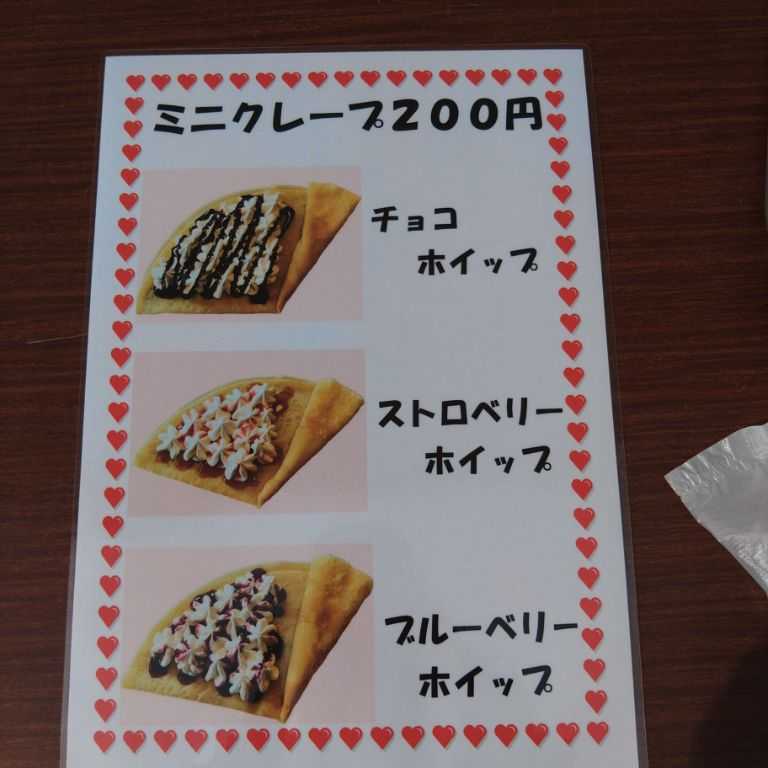 ミニクレープ200円
チョコ
ホイップ
ストロベリー
ホイップ
ブルーベリー
ホイップ